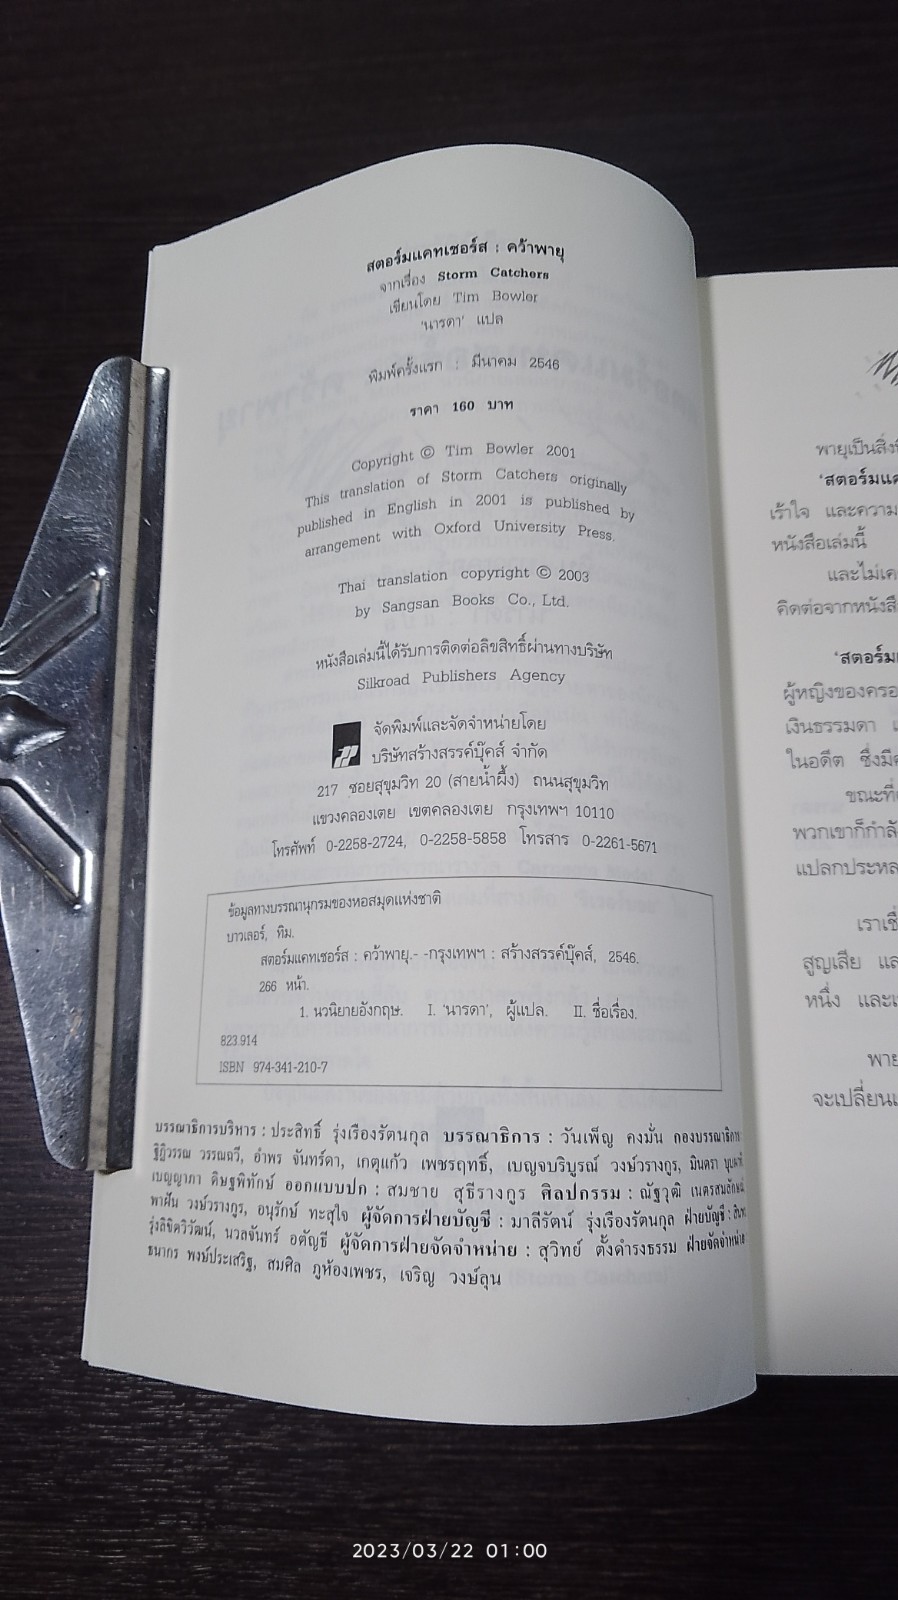 สตอร์มแคทเชอร์ส : คว้าพายุ
จากเรื่อง Storm Catchers
เขียนโดย Tim Bowler
'นารดา' แปล
พิมพ์ครั้งแรก : มีนาคม 2546
ราคา 160 บาท
Copyright © Tim Bowler 2001
This translation of Storm Catchers originally
published in English in 2001 is published by
arrangement with Oxford University Press.
Thai translation copyright © 2003
by Sangsan Books Co., Ltd.
หนังสือเล่มนี้ได้รับการติดต่อลิขสิทธิ์ผ่านทางบริษัท
Silkroad Publishers Agency
จัดพิมพ์และจัดจำหน่ายโดย
บริษัทสร้างสรรค์บุ๊คส์ จำกัด
217 ซอยสุขุมวิท 20 (สายน้ำผึ้ง) ถนนสุขุมวิท
แขวงคลองเตย เขตคลองเตย กรุงเทพฯ 10110
โทรศัพท์ 0-2258-2724, 0-2258-5858 โทรสาร 0-2261-5671
ข้อมูลทางบรรณานุกรมของหอสมุดแห่งชาติ
บาวเลอร์, ทิม.
สตอร์มแคทเชอร์ส : คว้าพายุ.- -กรุงเทพฯ : สร้างสรรค์บุ๊คส์, 2546.
266 หน้า.
1. นวนิยายอังกฤษ. I. 'นารดา', ผู้แปล. II. ชื่อเรื่อง.
823.914
ISBN 974-341-210-7
บรรณาธิการบริหาร : ประสิทธิ์ รุ่งเรืองรัตนกุล บรรณาธิการ : วันเพ็ญ คงมั่น กองบรรณาธิการ
ฐิฏิวรรณ วรรณฉวี, อำพร จันทร์ดา, เกตุแก้ว เพชรฤทธิ์, เบญจบริบูรณ์ วงษ์วรางกูร, มินตรา
เบญญาภา ดิษฐพิทักษ์ ออกแบบปก : สมชาย สุธีรางกูร ศิลปกรรม : ณัฐวุฒิ เนตรสมลักษณ์
พาฝัน วงษ์วรางกูร, อนุรักษ์ ทะสุใจ ผู้จัดการฝ่ายบัญชี : มาลีรัตน์ รุ่งเรืองรัตนกุล ฝ่ายบัญชี :
รุ่งลิขิตวิวัฒน์, นวลจันทร์ อตัญธี ผู้จัดการฝ่ายจัดจำหน่าย : สุวิทย์ ตั้งดำรงธรรม ฝ่ายจัดจำหน่าย
ธนากร พงษ์ประเสริฐ, สมศิล ภูห้องเพชร, เจริญ วงษ์ลุน
พายุเป็นสิ่งที่
'สตอร์มแค
เร้าใจ และความ
หนังสือเล่มนี้
และไม่เค
คิดต่อจากหนังสื
'สตอร์ม
ผู้หญิงของครอ
เงินธรรมดา
ในอดีต ซึ่งมี
ขณะที่
พวกเขาก็กำลั
แปลกประหล
เราเชื่
สูญเสีย แล
หนึ่ง และเ
พาย
จะเปลี่ยนแ
2023/03/22 01:00